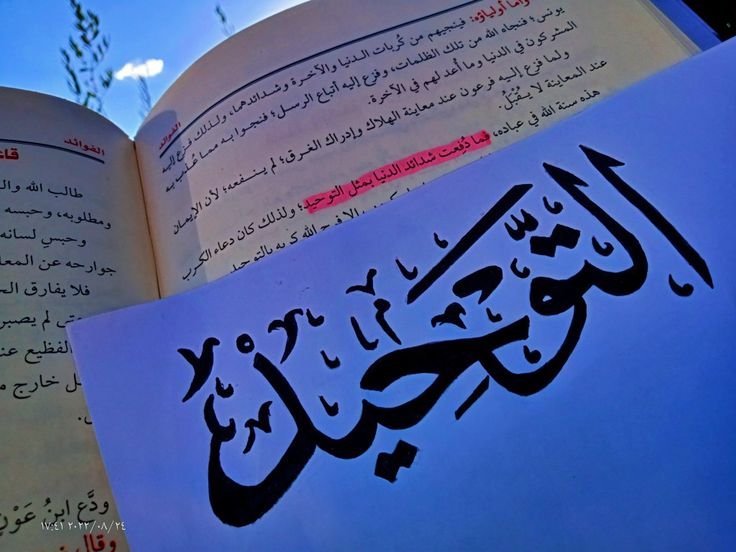 وأما أولياؤه: فينجيهم من كُربات الدنيا والآخرة وشدائدهما، ولذلك فزع إليه
يونس؛ فنجاه الله من تلك الظلمات، وفزع إليه أتباع الرسل؛ فنجوا به مما عُذب به
المشركون في الدنيا وما أعد لهم في الآخرة.
ولما فزع إليه فرعون عند معاينة الهلاك وإدراك الغرق؛ لم ينفعه؛ لأن الإيمان
عند المعاينة لا يُقْبَلُ.
هذه سنة الله في عباده، فما دُفِعت شدائد الدنيا بمثل التوحيد؛ ولذلك كان دعاء الكرب
إلا فرج الله كربه بالتوحيد
الفوائد
الفوائد
طالب الله والد
ومطلوبه، وحبسه
وحبس لسانه
جوارحه عن المعا
فلا يفارق الح
لم يصبر
الفظيع عند
خارج
ودَّع ابنُ عَوْنٍ
وقال
التَّوحِيدْ
١٧:٤١ ٢٠٢٢/٠٨/٢٤